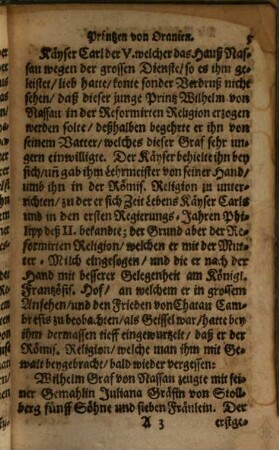 Printzen von Oranien. 5
Käyser Carl der V. welcher das Hauß Nas-
sau wegen der grossen Dienste/ so es ihm ge-
leistet/ lieb hatte/ konte sonder Verdruß nicht
sehen/ daß dieser junge Printz Wilhelm von
Nassau in der Reformirten Religion erzogen
werden solte/ deßhalben begehrte er ihn von
seinem Vatter/ welches dieser Graf sehr un-
gern einwilligte. Der Käyser behielte ihn bey
sich/ uñ gab ihm Lehrmeister von seiner Hand/
umb ihn in der Römis. Religion zu unter-
richten/ zu der er sich Zeit Lebens Käyser Carls
und in den ersten Regierungs-Jahren Phi-
lipp deß II. bekandte; der Grund aber der Re-
formirten Religion/ welchen er mit der Mut-
ter-Milch eingesogen/ und die er nach der
Hand mit besserer Gelegenheit am Königl.
Frantzösis. Hof/ an welchem er in grossem
Ansehen/ und den Frieden von Chatau Cam-
bresis zu beobachten/ als Geissel war/ hatte bey
ihm dermassen tieff eingewurtzelt/ daß er der
Römis. Religion/ welche man ihm mit Ge-
walt beygebracht/ bald wieder vergessen:
Wilhelm Graf von Nassau zeugte mit sei-
ner Gemahlin Juliana Gräfin von Stoll-
berg fünff Söhne und sieben Fräulein. Der
A 3 erstge-